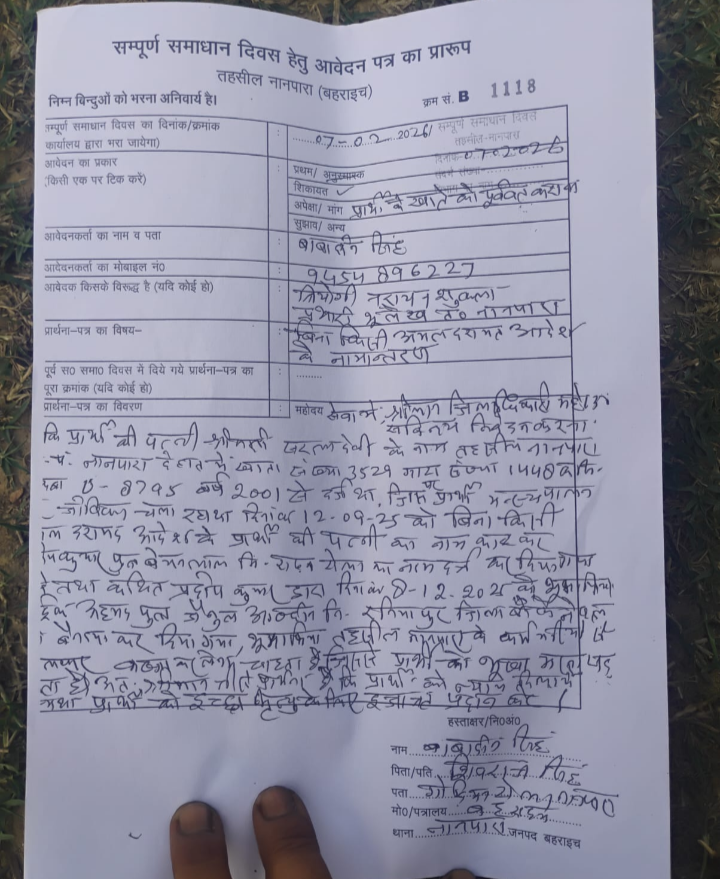 सम्पूर्ण समाधान दिवस हेतु आवेदन पत्र का प्रारूप
तहसील नानपारा (बहराइच)
निम्न बिन्दुओं को भरना अनिवार्य है।
क्रम सं. B 1118
सम्पूर्ण समाधान दिवस
तहसील-नानपारा
दिनांक 07.02.2026
सम्पूर्ण समाधान दिवस का दिनांक/क्रमांक : 07-02-2026
कार्यालय द्वारा भरा जायेगा)
आवेदन का प्रकार : प्रथम/ अनुस्मारक
(किसी एक पर टिक करें) शिकायत ✓
अपेक्षा/ मांग प्रार्थी के खाते को पूर्ववत कराने
सुझाव/ अन्य
आवेदनकर्ता का नाम व पता : बाबादीन सिंह
आवेदनकर्ता का मोबाइल नं0 : 9454896227
आवेदक किसके विरूद्ध है (यदि कोई हो) : नारायन शुक्ला
प्रभारी भूलेख त0 नानपारा
प्रार्थना-पत्र का विषय- : बिना किसी अमलदरामद आदेश
के नामान्तरण
पूर्व स0 समा0 दिवस में दिये गये प्रार्थना-पत्र का : ........
पूरा क्रमांक (यदि कोई हो)
प्रार्थना-पत्र का विवरण : महोदय सेवा में श्रीमान जिलाधिकारी महोदय
सविनय निवेदन करना
कि प्रार्थी की पत्नी श्रीमती सरला देवी के नाम तहसील नानपारा
नानपारा देहात के खाता संख्या 3529 गाटा संख्या 1448क मि.
वर्ष 2001 से दर्ज था, जिस पर प्रार्थी
जीविका चला रहा था दिनांक 12-09-25 को बिना किसी
दरामद आदेश के प्रार्थी की पत्नी का नाम काट कर
पुत्र नि- का नाम दर्ज कर दिया गया
है तथा कथित प्रदीप कुमार द्वारा दिनांक 8-12-2025 को भूमाफिया
अहमद पुत्र नि- जिला को
बैनामा कर दिया गया, भूमाफिया तहसील नानपारा के कर्मचारियों से
कब्जा कर लेना चाहता है जिससे प्रार्थी को भूखा मरना पड़
अतः श्रीमान जी से प्रार्थना है कि प्रार्थी को न्याय दिलाये
अथवा प्रार्थी को इच्छा मृत्यु के लिए इजाजत प्रदान करें।
हस्ताक्षर/नि0अं0
नाम बाबादीन सिंह
पिता/पति शिवराज सिंह
पता
मो0/पत्रालय
थाना नानपारा जनपद बहराइच